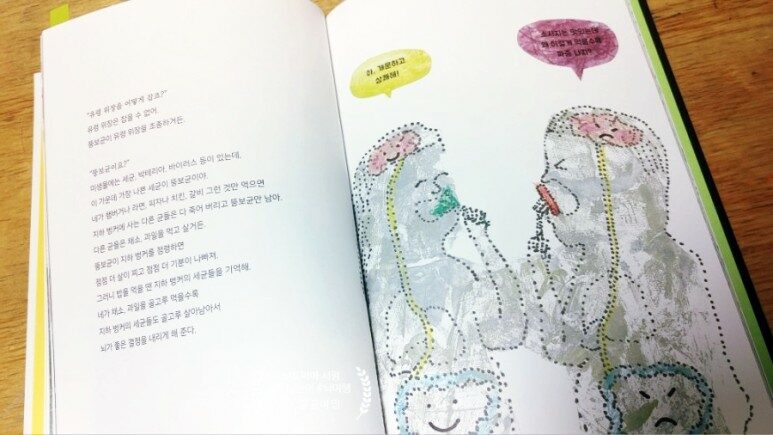 "유령 위장을 어떻게 잡죠?"
유령 위장은 잡을 수 없어.
뚱보균이 유령 위장을 조종하거든.
"뚱보균이요?"
미생물에는 세균, 박테리아, 바이러스 등이 있는데,
이 가운데 가장 나쁜 세균이 뚱보균이야.
네가 햄버거나 라면, 피자나 치킨, 갈비 그런 것만 먹으면
지하 벙커에 사는 다른 균들은 다 죽어 버리고 뚱보균만 남아.
다른 균들은 채소, 과일을 먹고 살거든.
뚱보균이 지하 벙커를 점령하면
점점 더 살이 찌고 점점 더 기분이 나빠져.
그러니 밥을 먹을 땐 지하 벙커의 세균들을 기억해.
네가 채소, 과일을 골고루 먹을수록
지하 벙커의 세균들도 골고루 살아남아서
뇌가 좋은 결정을 내리게 해 준다.
아, 개운하고
상쾌해!
소시지는 맛있는데
왜 이렇게 먹을수록
짜증 나지?